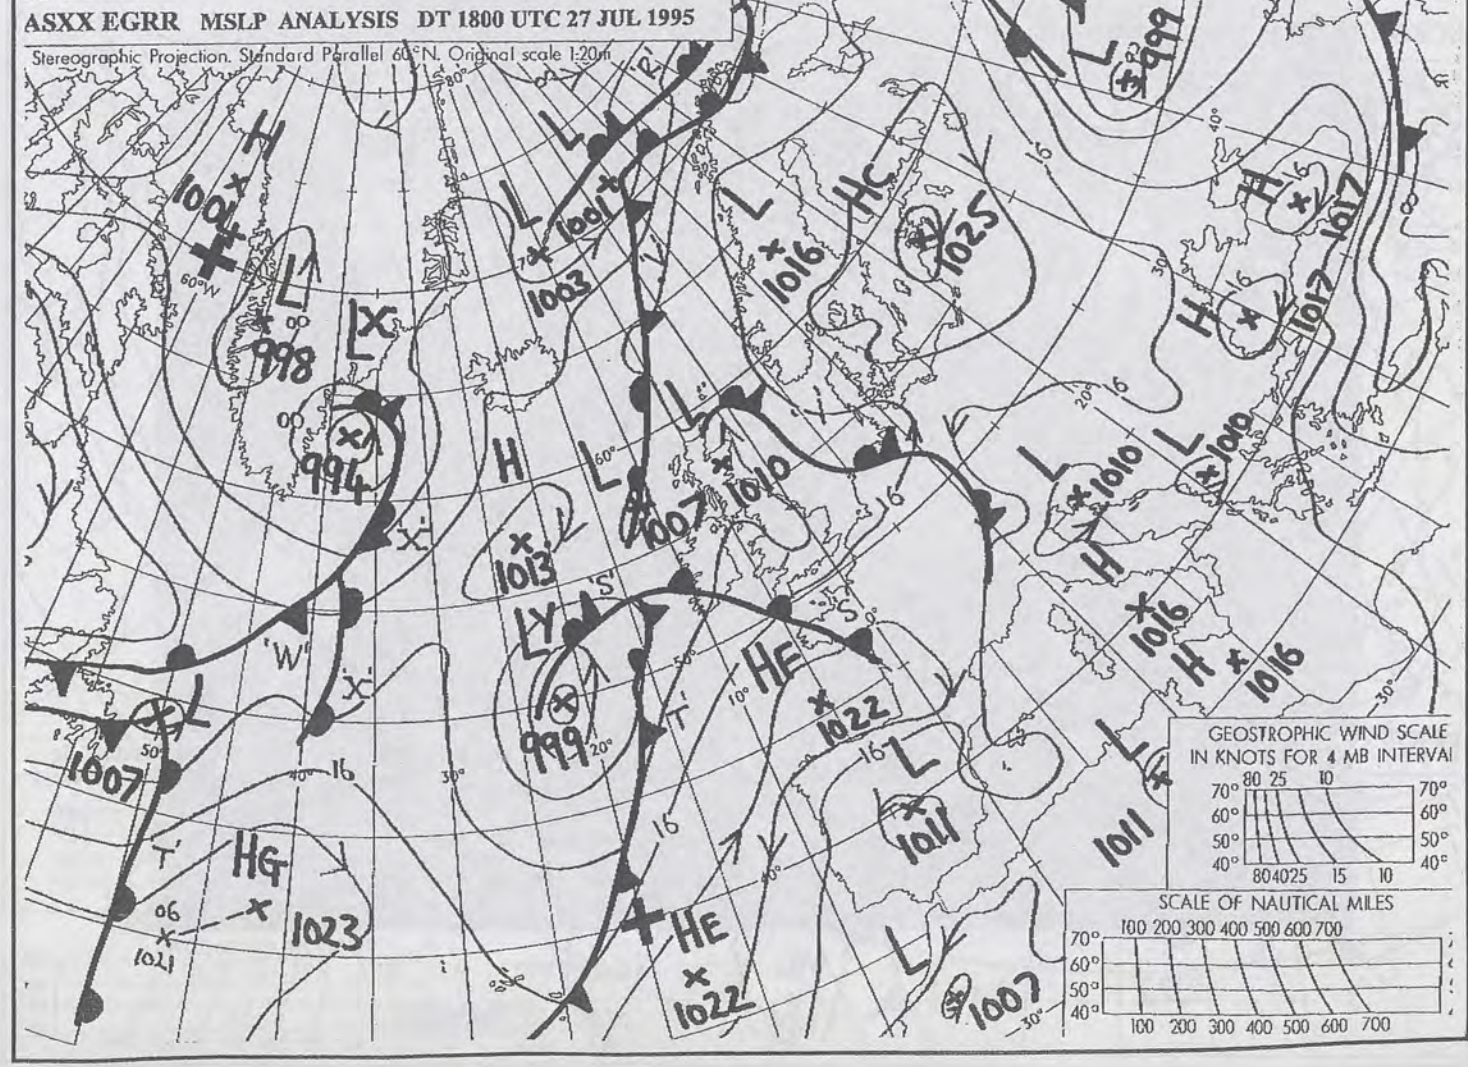 ASXX EGRR MSLP ANALYSIS DT 1800 UTC 27 JUL 1995
Stereographic Projection. Standard Parallel 60°N. Original scale 1:20m
80°
'R'
L
999
H
1004
60°W
L
00
998
LX
00
994
'X'
L
L
1001
70°
1003
L
1016
HC
1025
16
40°
H
16
1017
30°
H
16
1017
H
1013
L
60°
1007
L
1010
16
20°
16
L
1010
L
1010
H
1016
H
1016
30°
'W'
'X'
LY
'S'
'S'
0°
999
20°
50°
'T'
10°
HE
1022
16
L
1011
L
1011
L
1007
50°
40°
16
30°
T'
HG
06
1021
1023
16
40°
HE
1022
L
1007
30°
GEOSTROPHIC WIND SCALE
IN KNOTS FOR 4 MB INTERVAL
80 25 10
70° 70°
60° 60°
50° 50°
40° 40°
80 40 25 15 10
SCALE OF NAUTICAL MILES
100 200 300 400 500 600 700
70°
60°
50°
40°
100 200 300 400 500 600 700